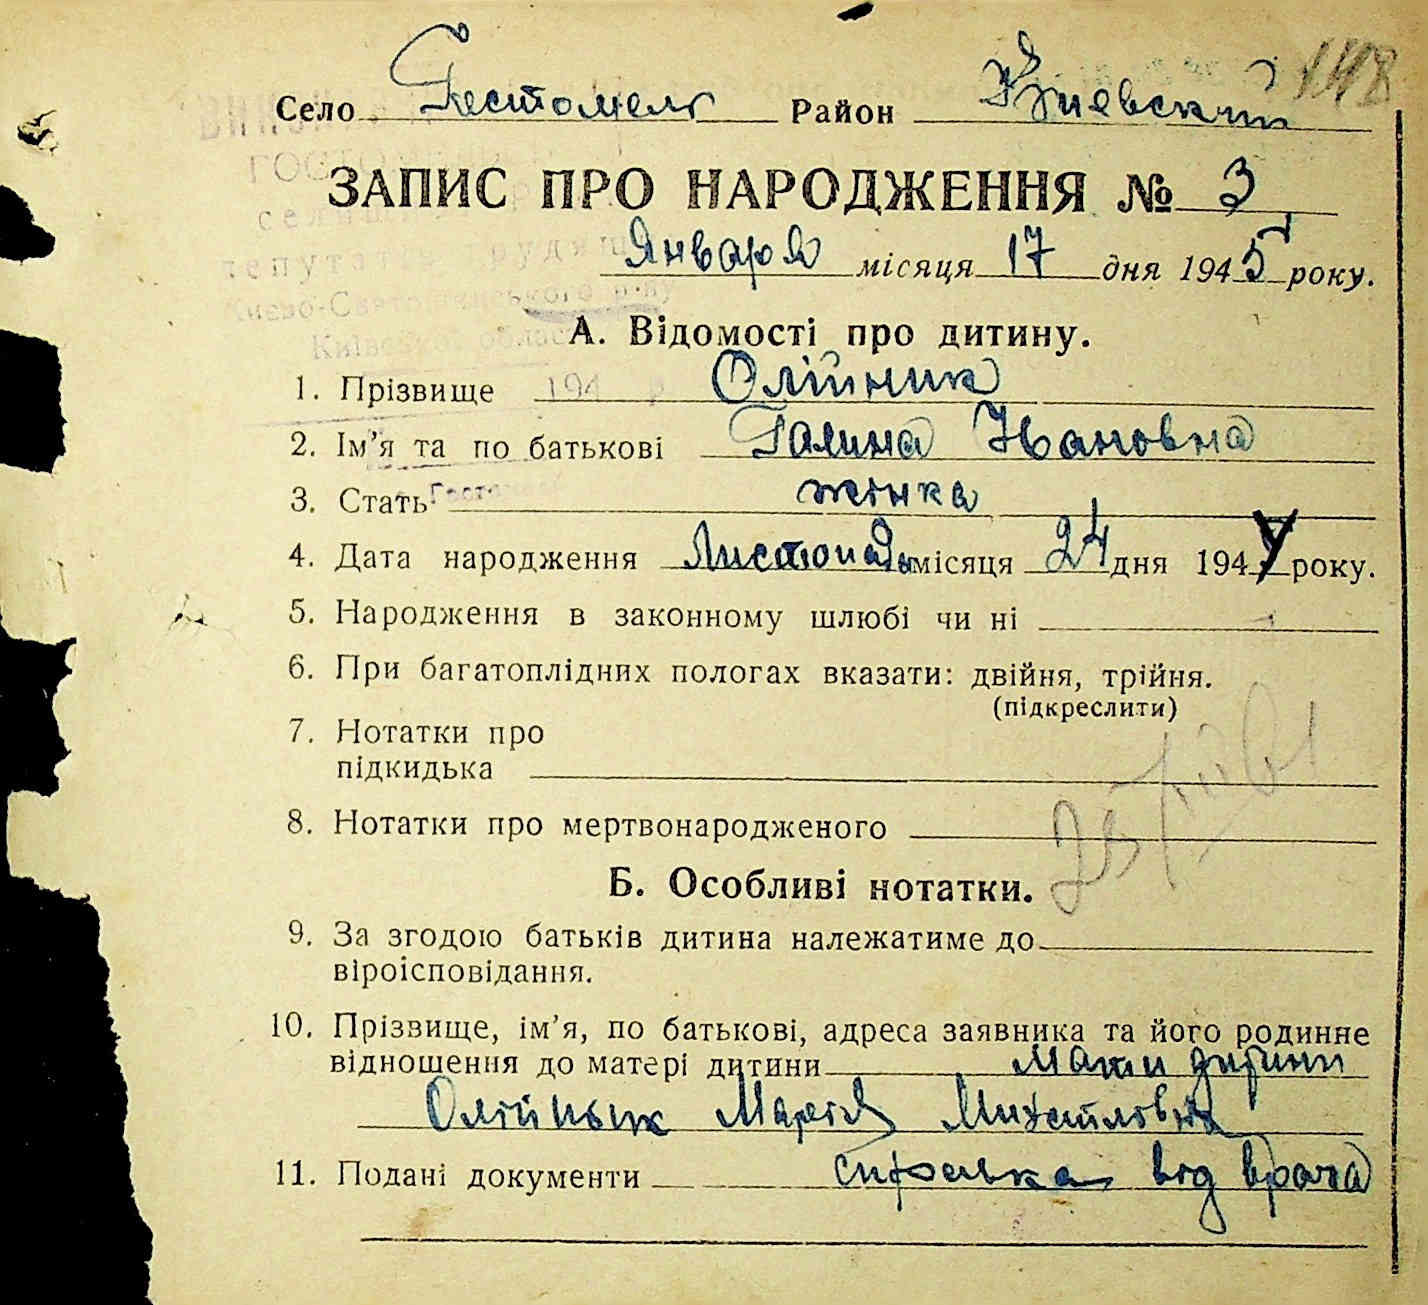 148
Село Гостомель Район Киевский
ЗАПИС ПРО НАРОДЖЕННЯ № 3
Января місяця 17 дня 1945 року.
А. Відомості про дитину.
1. Прізвище Олійник
2. Ім’я та по батькові Галина Ивановна
3. Стать жінка
4. Дата народження Листопада місяця 24 дня 1944 року.
5. Народження в законному шлюбі чи ні
6. При багатоплідних пологах вказати: двійня, трійня.
(підкреслити)
7. Нотатки про
підкидька
8. Нотатки про мертвонародженого
Б. Особливі нотатки.
9. За згодою батьків дитина належатиме до
віроісповідання.
10. Прізвище, ім’я, по батькові, адреса заявника та його родинне
відношення до матері дитини Мати дитини
Олійнык Марія Михайловна
11. Подані документи справка від врача